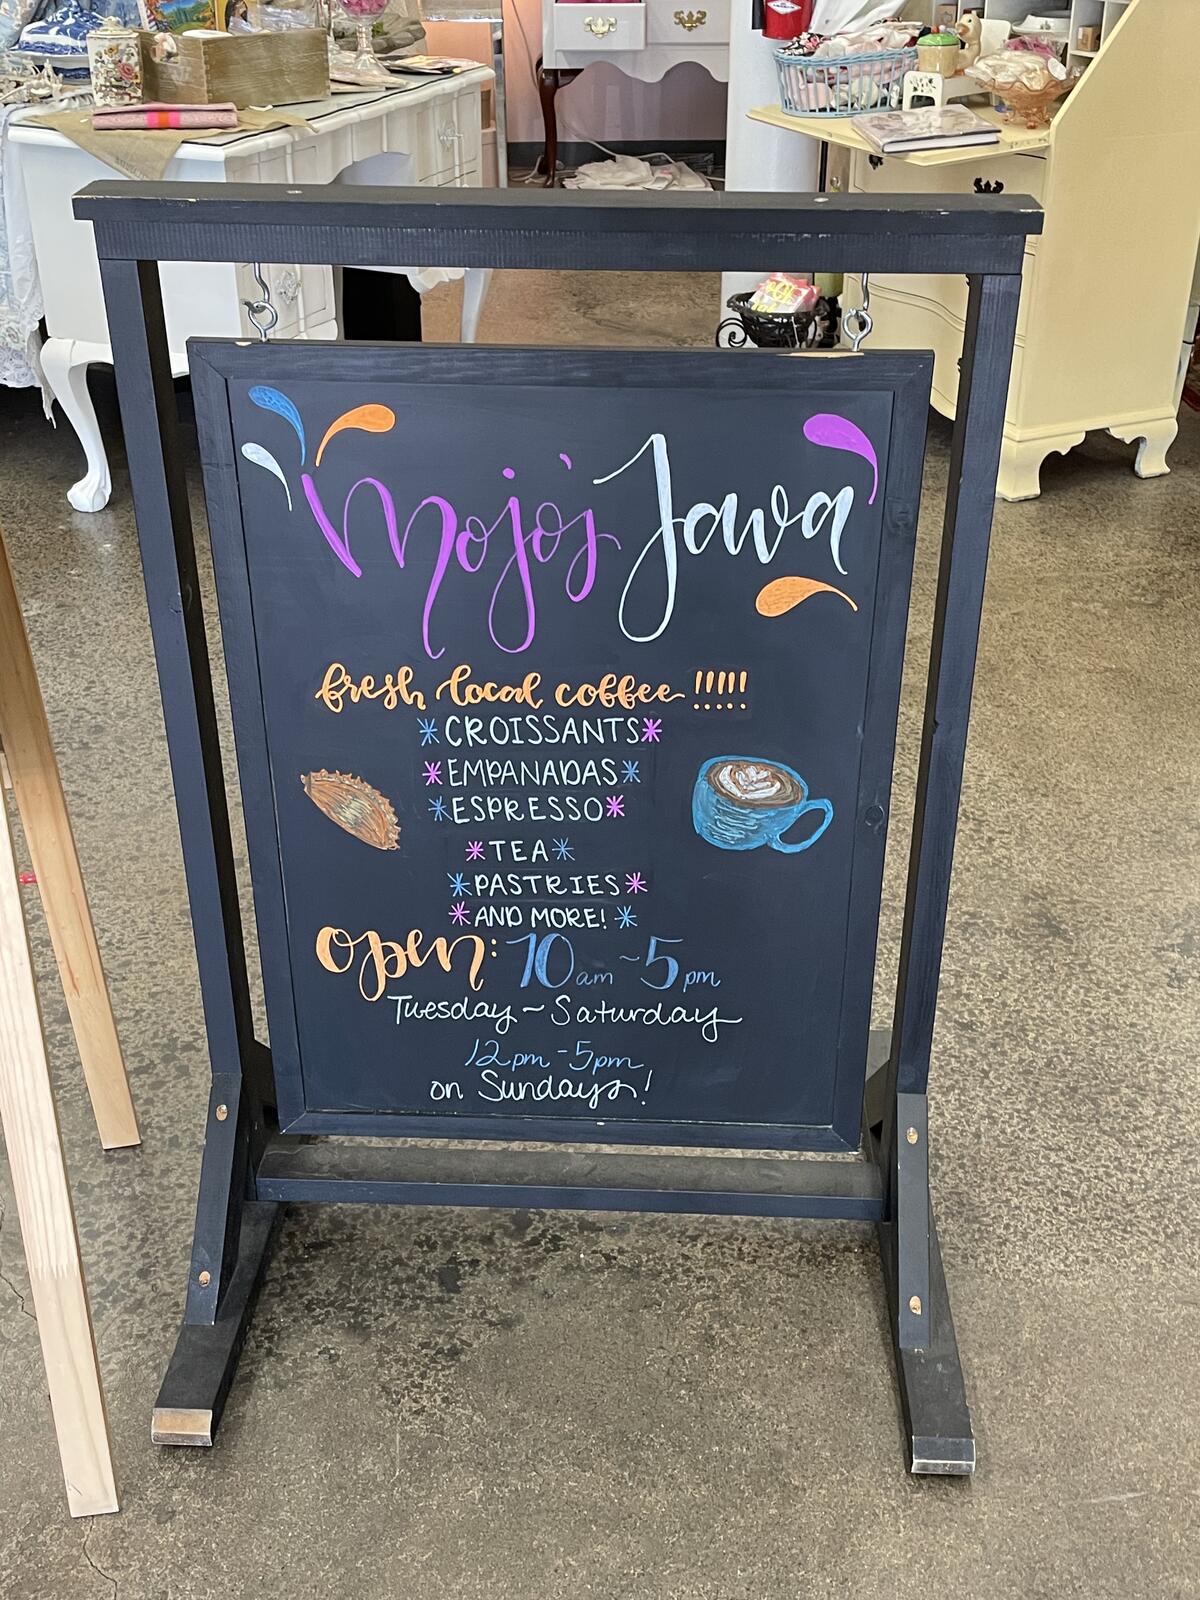 Mojo's Java
fresh local coffee!!!!!
*CROISSANTS*
*EMPANADAS*
*ESPRESSO*
*TEA*
*PASTRIES*
*AND MORE!*
Open: 10am~5pm
Tuesday~Saturday
12pm-5pm
on Sundays!